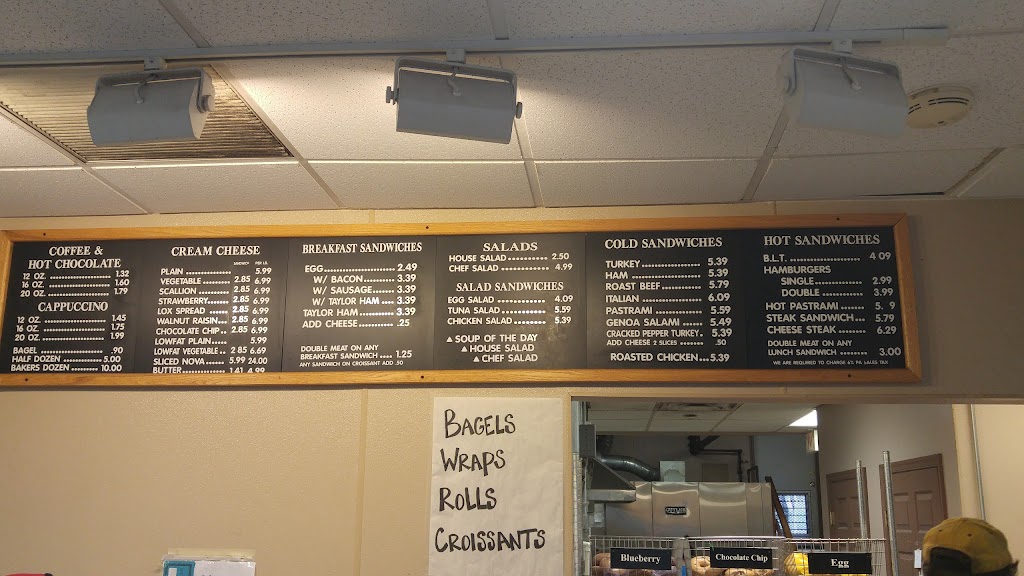 COFFEE &
HOT CHOCOLATE
12 OZ. 1.32
16 OZ. 1.60
20 OZ. 1.79
CAPPUCCINO
12 OZ. 1.45
16 OZ. 1.75
20 OZ. 1.99
BAGEL .90
HALF DOZEN 5.00
BAKERS DOZEN 10.00
CREAM CHEESE
SANDWICH PER LB.
PLAIN 5.99
VEGETABLE 2.85 6.99
SCALLION 2.85 6.99
STRAWBERRY 2.85 6.99
LOX SPREAD 2.85 6.99
WALNUT RAISIN 2.85 6.99
CHOCOLATE CHIP 2.85 6.99
LOWFAT PLAIN 5.99
LOWFAT VEGETABLE 2 85 6.69
SLICED NOVA 5.99 24.00
BUTTER 1.41 4.99
BREAKFAST SANDWICHES
EGG 2.49
W/ BACON 3.39
W/ SAUSAGE 3.39
W/ TAYLOR HAM 3.39
TAYLOR HAM 3.39
ADD CHEESE .25
DOUBLE MEAT ON ANY
BREAKFAST SANDWICH 1.25
ANY SANDWICH ON CROISSANT ADD .50
SALADS
HOUSE SALAD 2.50
CHEF SALAD 4.99
SALAD SANDWICHES
EGG SALAD 4.09
TUNA SALAD 5.59
CHICKEN SALAD 5.39
▲ SOUP OF THE DAY
▲ HOUSE SALAD
▲ CHEF SALAD
COLD SANDWICHES
TURKEY 5.39
HAM 5.39
ROAST BEEF 5.79
ITALIAN 6.09
PASTRAMI 5.59
GENOA SALAMI 5.49
CRACKED PEPPER TURKEY 5.39
ADD CHEESE 2 SLICES .50
ROASTED CHICKEN 5.39
HOT SANDWICHES
B.L.T. 4 09
HAMBURGERS
SINGLE 2.99
DOUBLE 3.99
HOT PASTRAMI 5. 9
STEAK SANDWICH 5.79
CHEESE STEAK 6.29
DOUBLE MEAT ON ANY
LUNCH SANDWICH 3.00
WE ARE REQUIRED TO CHARGE 6% PA SALES TAX
BAGELS
WRAPS
ROLLS
CROISSANTS
Blueberry
Chocolate Chip
Egg